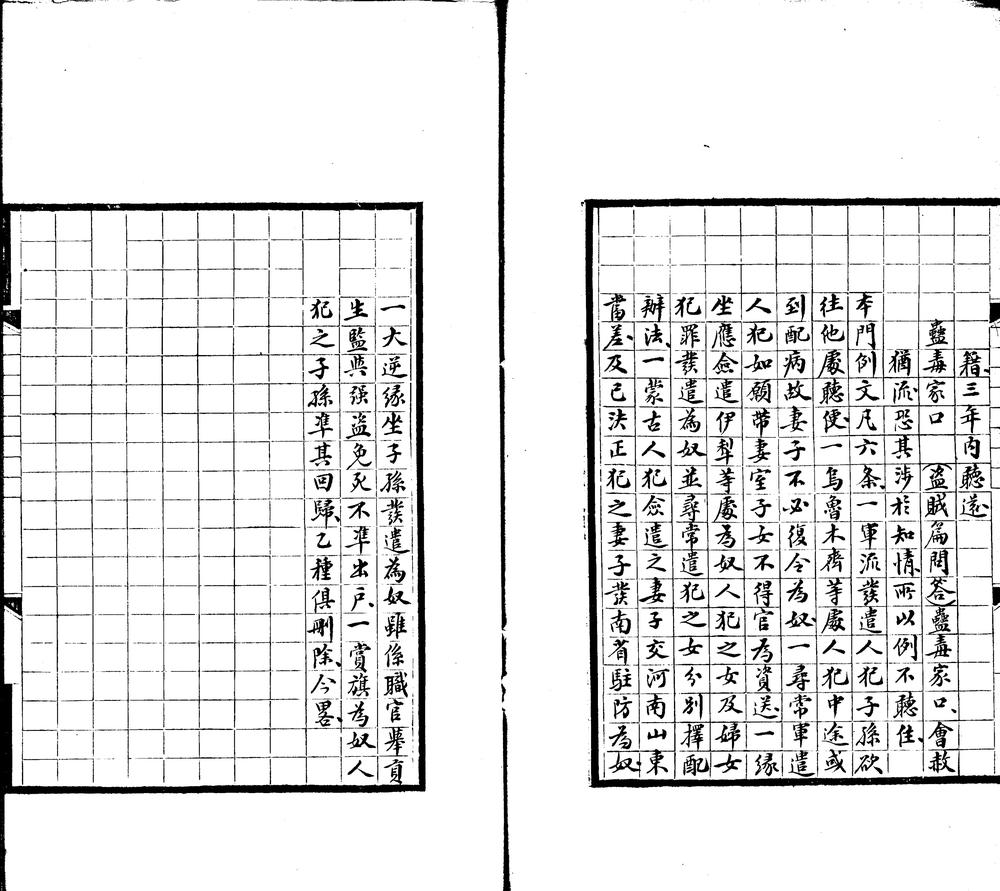 籍、三年內聽還
蠱毒家口（盜賊篇問答）蠱毒家口、會赦
猶流、恐其涉於知情、所以例不聽住、
本門例文凡六条、一軍流發遣人犯子孫欲
往他處聽便、一烏魯木齊等處人犯中途或
到配病故妻子不必復令為奴、一尋常軍遣
人犯如願帶妻室子女不得官為資送、一緣
坐應僉遣伊犁等處為奴人犯之女及婦女
犯罪發遣為奴並尋常遣犯之女分别擇配
辦法、一蒙古人犯僉遣之妻子交河南山東
當差、及已決正犯之妻子發南省駐防為奴、
一大逆緣坐子孫發遣為奴雖係職官舉貢
生監與强盗免死不准出戶、一賞旗為奴人
犯之子孫准其回歸、乙種俱刪除、今畧、